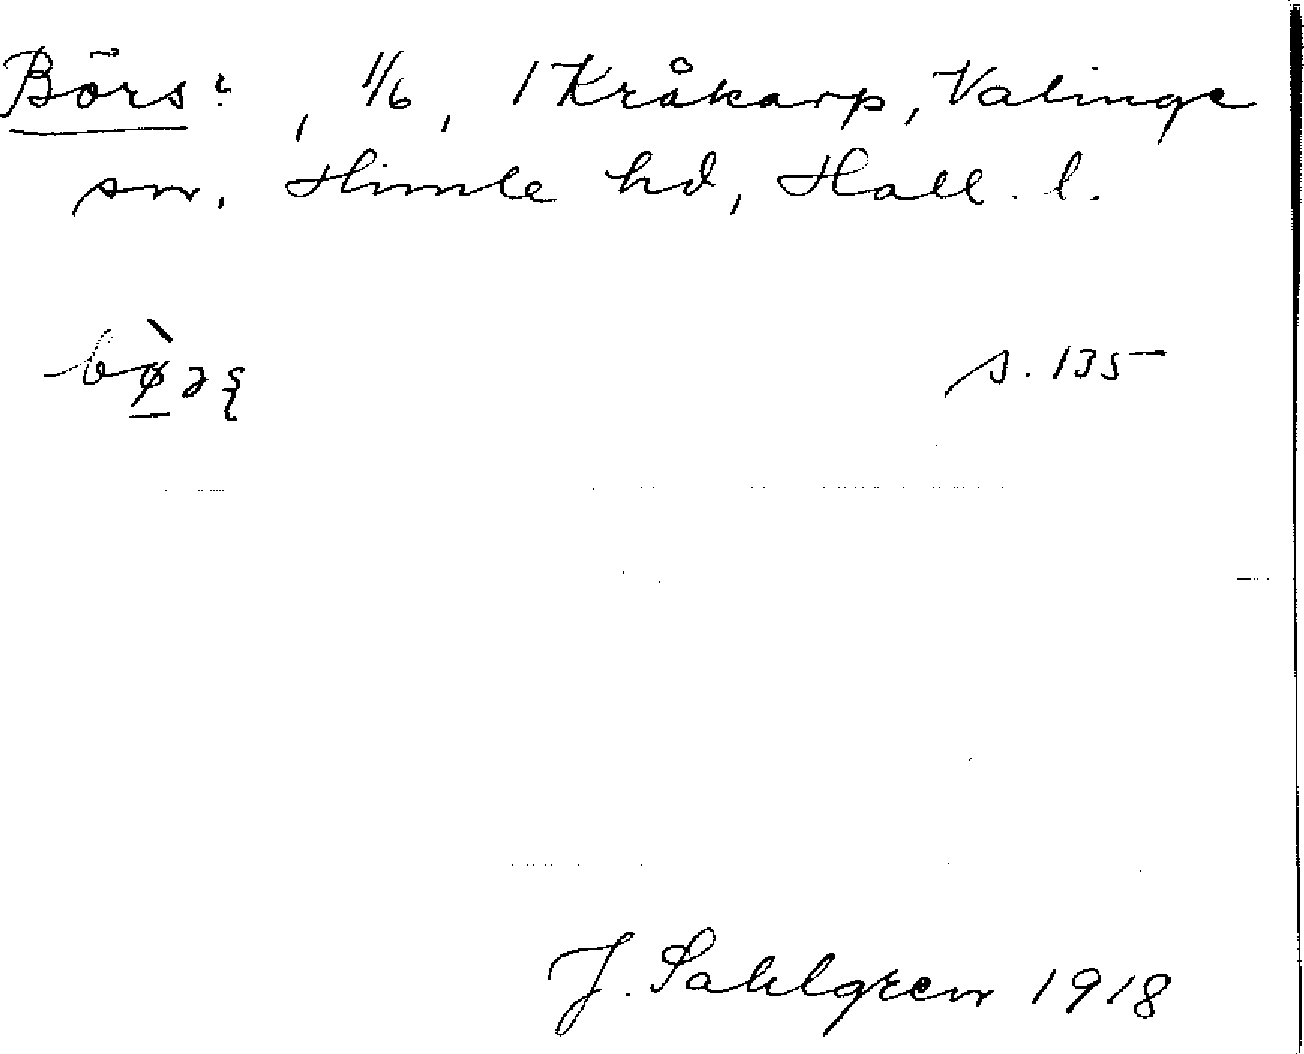 Börs:, 1/6, 1 Kråkarp, Valinge
sn. Himle hd, Hall. l.
s. 135
J. Sahlgren 1918